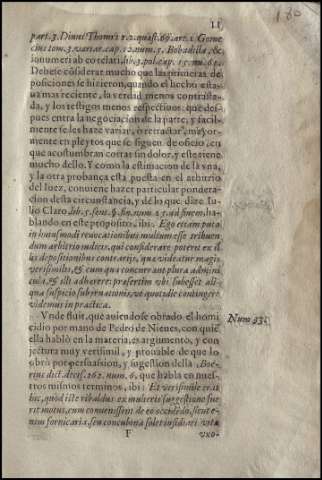 11
180
part. 3. Diuus Thomas 1.2. quæst. 69. art. 1. Gome
cius tom. 3. variar. cap. 12. num. 5. Bobadilla, &
ionumeri ab eo relati, lib. 3. pol. cap. 15. nu. 61.
Debese cõsiderar mucho que las primeras de
posiciones se hizieron, quando el hecho estaua
mas reciente, la verdad menos contrasta-
da, y los testigos menos respectiuos: que des-
pues entra la negociacion de la parte, y facil-
mente se les haze variar, ò retractar, mayor-
mente en pleytos que se siguen de oficio, en
que acostumbran costas sin dolor, y este tiene
mucho dello. Y como la estimacion de la vna,
y la otra probança està puesta en el arbitrio
del Iuez, conuiene hazer particular pondera-
cion desta circunstancia, y de lo que dize Iu-
lio Claro, lib. 5. sent. §. fin. num. 25. ad finem, ha-
blando en este proposito, ibi: Ego etiam puto
in huiusmodi reuocationibus multum esse tribuen
dum arbitrio iudicis, qui considerare poterit ex il
lis depositionibus contrarijs, qua videatur magis
verisimilis, & cum qua concurrant plura admini
cula, & illi adhærere: præsertim vbi subesset ali-
qua suspicio subornationis, vt quotidie contingere
videmus in practica.
Vnde fluit, que auiendose obrado el homi
cidio por mano de Pedro de Nieues, con quiẽ
ella hablò en la materia, es argumento, y con
jectura muy verisimil, y prouable de que lo
obrò por persuassion, y sugestion della, Boe-
rius dict. decis. 262. num. 6. que habla en nues-
tros mismos terminos, ibi: Et verisimile erat
hic, quòd iste ribaldus ex mulieris suggestione fue
rit motus, cum conuenissent de eo occidẽdo, sicut e-
nim fornicaria, seu concubina solet insidiari vitæ
F
vxo-
Num. 33.